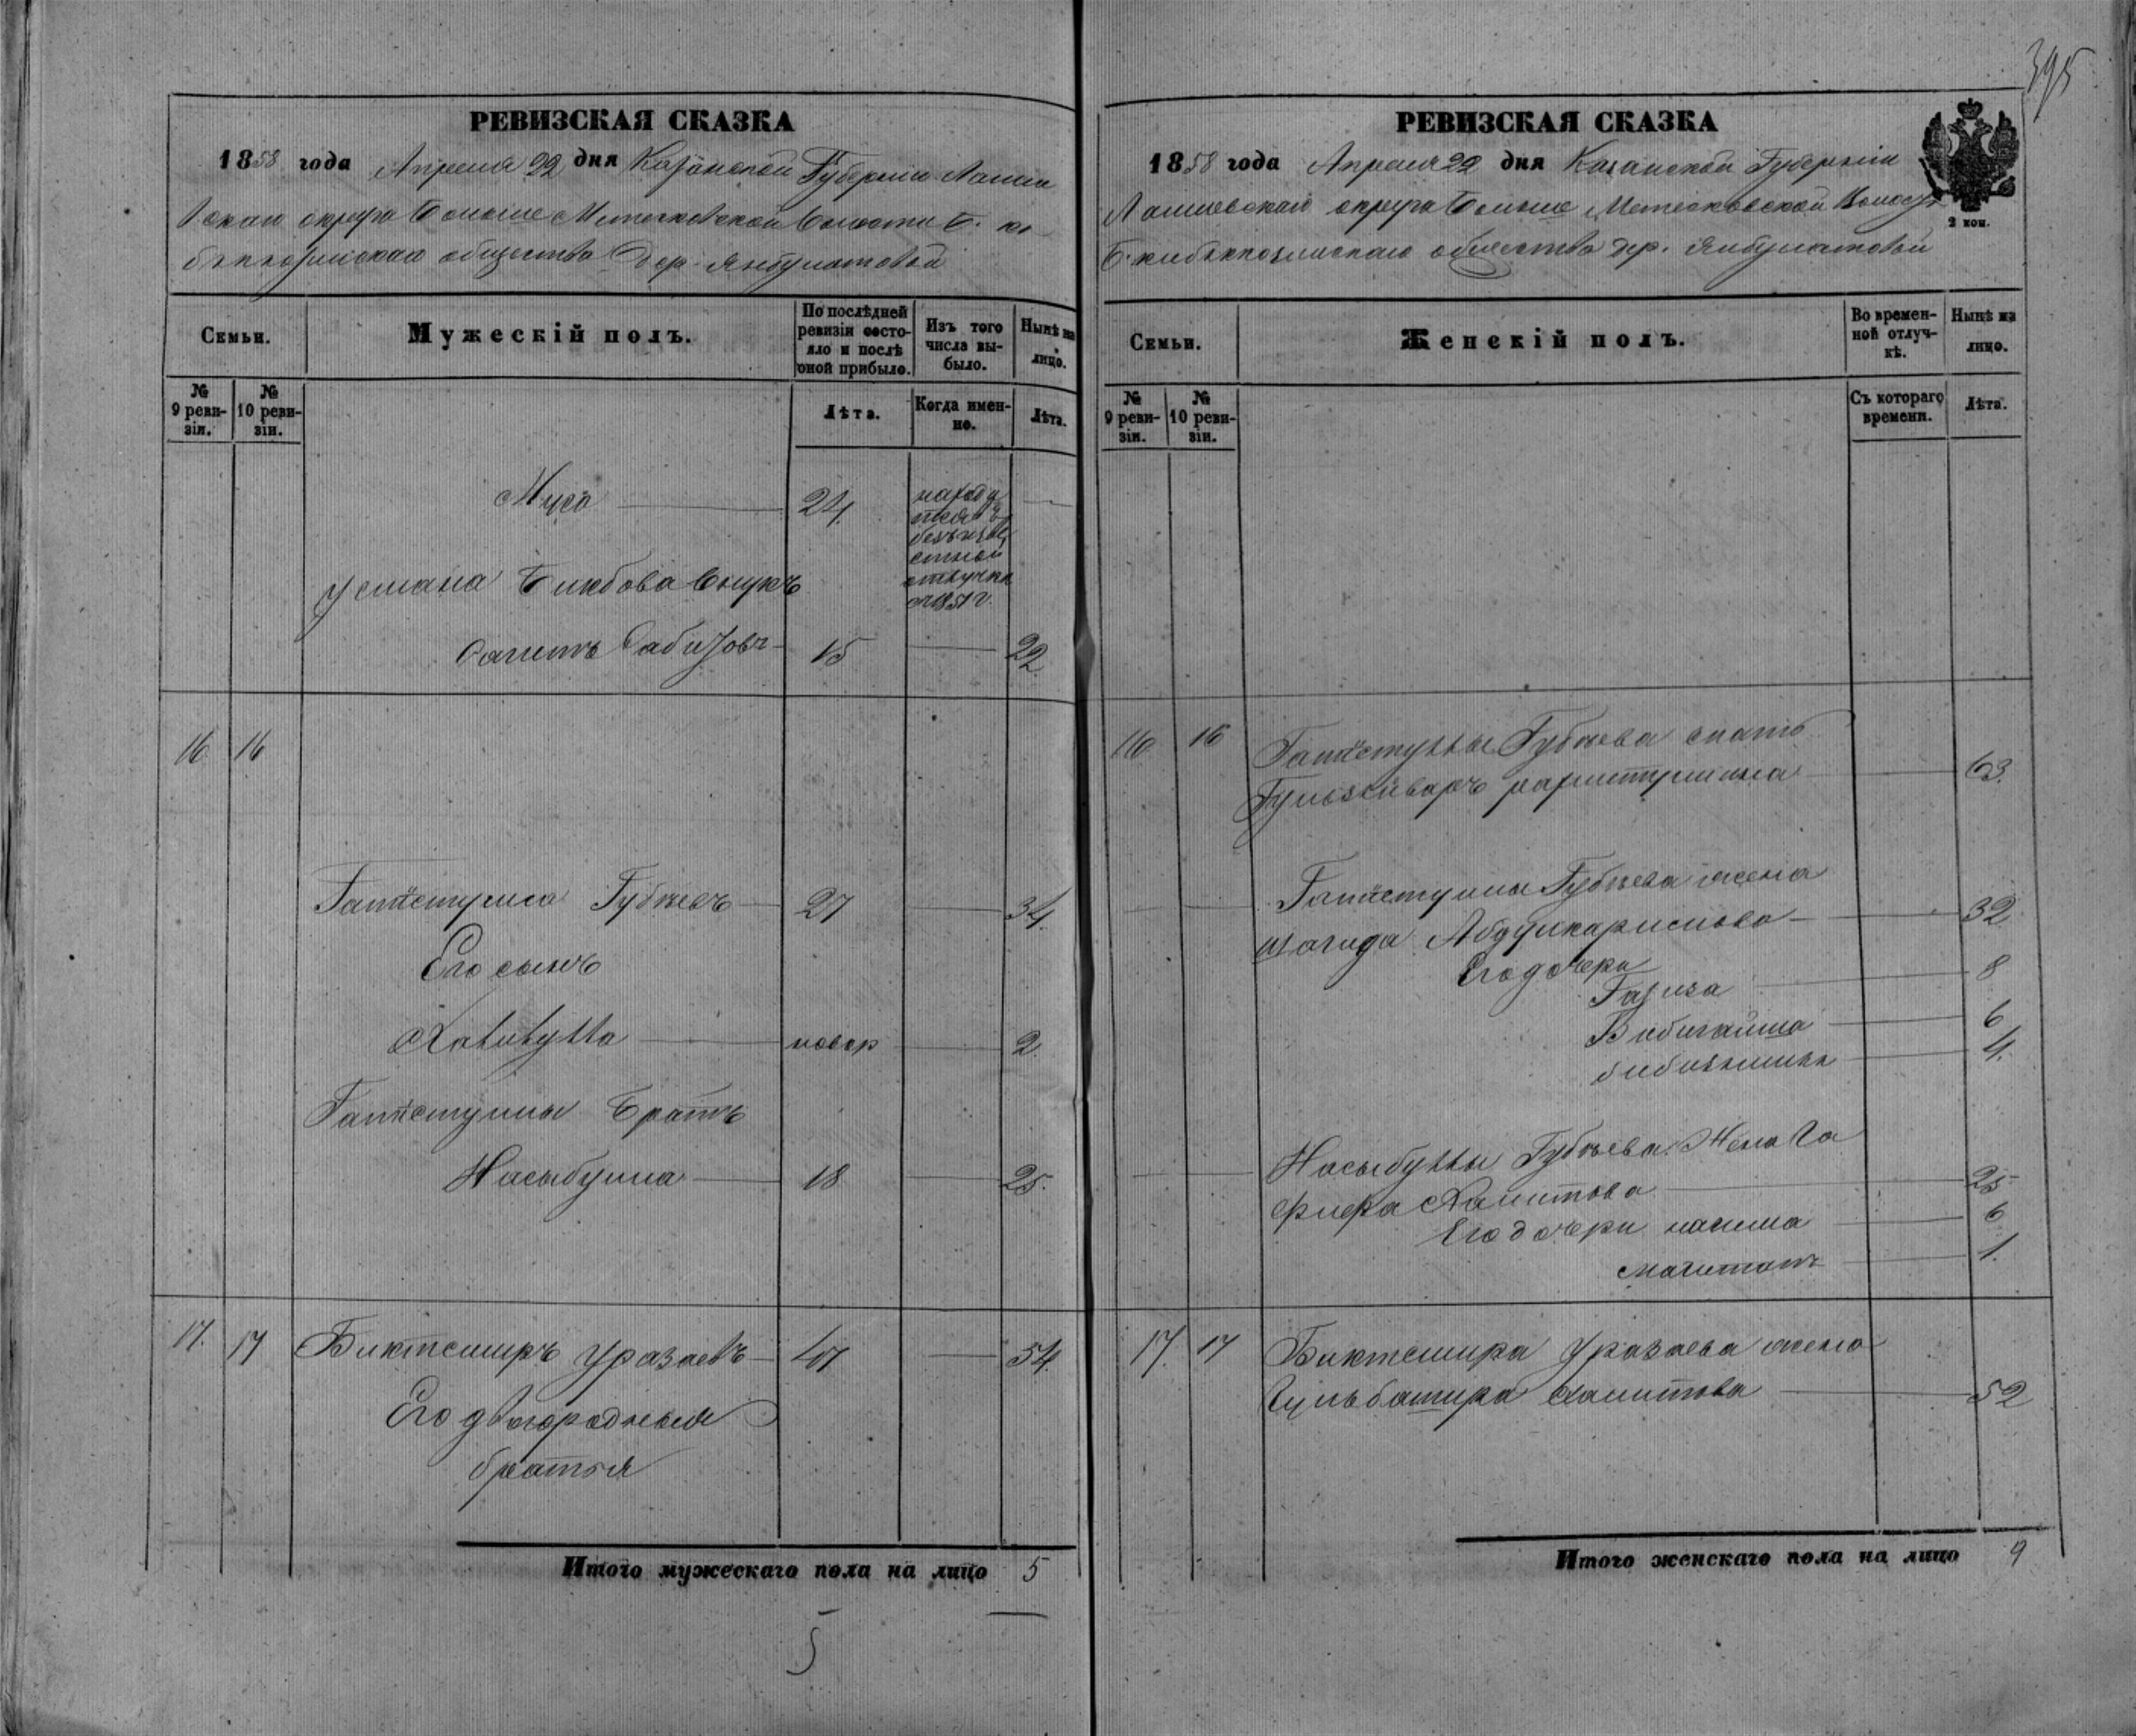 395
РЕВИЗСКАЯ СКАЗКА
1858 года Апреля 22 дня Казанской Губернiи Лаише
вскаго округа Больше Метесковской Волости Б. ки
бяккозинскаго общества Дер. Янбулатовой
Семьи.
Мужескiй полъ.
По послѣдней ревизiи состо-
яло и послѣ оной прибыло.
Изъ того числа вы-
было.
Нынѣ на лицо.
№ 9 реви-
зiи.
№ 10 реви-
зiи.
Лѣта.
Когда имен-
но.
Лѣта.
Муса 24
находи
тся въ
безъизве
стной
отлучке
с 1851 г.
Усмана Бикбова внукъ
Сагитъ Сабитовъ 15 22
16 16
Губеевъ 27 34.
Его сынъ
Хабибулла новор 2
братъ
Насыбулла 18 25.
17. 17 Биктемиръ Уразаевъ 47 54.
Его двоюродныя
братья
Итого мужескаго пола на лицо 5
5
РЕВИЗСКАЯ СКАЗКА
1858 года Апреля 22 дня Казанской Губернiи
Лаишевскаго округа Больше Метесковской Волости
Б. кибяккозинскаго общества дер. Янбулатовой
2 коп.
Семьи.
Женскiй полъ.
Во времен-
ной отлуч-
кѣ.
Нынѣ на лицо.
№ 9 реви-
зiи.
№ 10 реви-
зiи.
Съ котораго времени.
Лѣта.
16 16 Губеева мать
63.
Губеева жена
Шагида Абдулкаримова 32
Его дочери
Газиза 8
Бибигайша 6
4.
Насыбуллы Губеева Жена Га
фифа Хамитова 25
Его дочери 6
1.
17. 17 Биктемира Уразаева жена
Гульбашира Хамитова 52
Итого женскаго пола на лицо 9